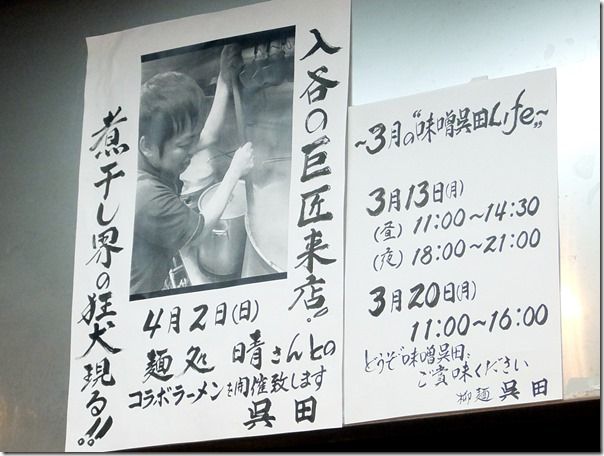 入谷の巨匠来店!!
煮干し界の狂犬現る!!
4月2日(日)
麺処 晴さんとの
コラボラーメンを開催致します
呉田
~3月の"味噌呉田Life"~
3月13日(月)
(昼) 11:00~14:30
(夜) 18:00~21:00
3月20日(月)
11:00~16:00
どうぞ味噌呉田、
ご賞味ください
柳麺 呉田